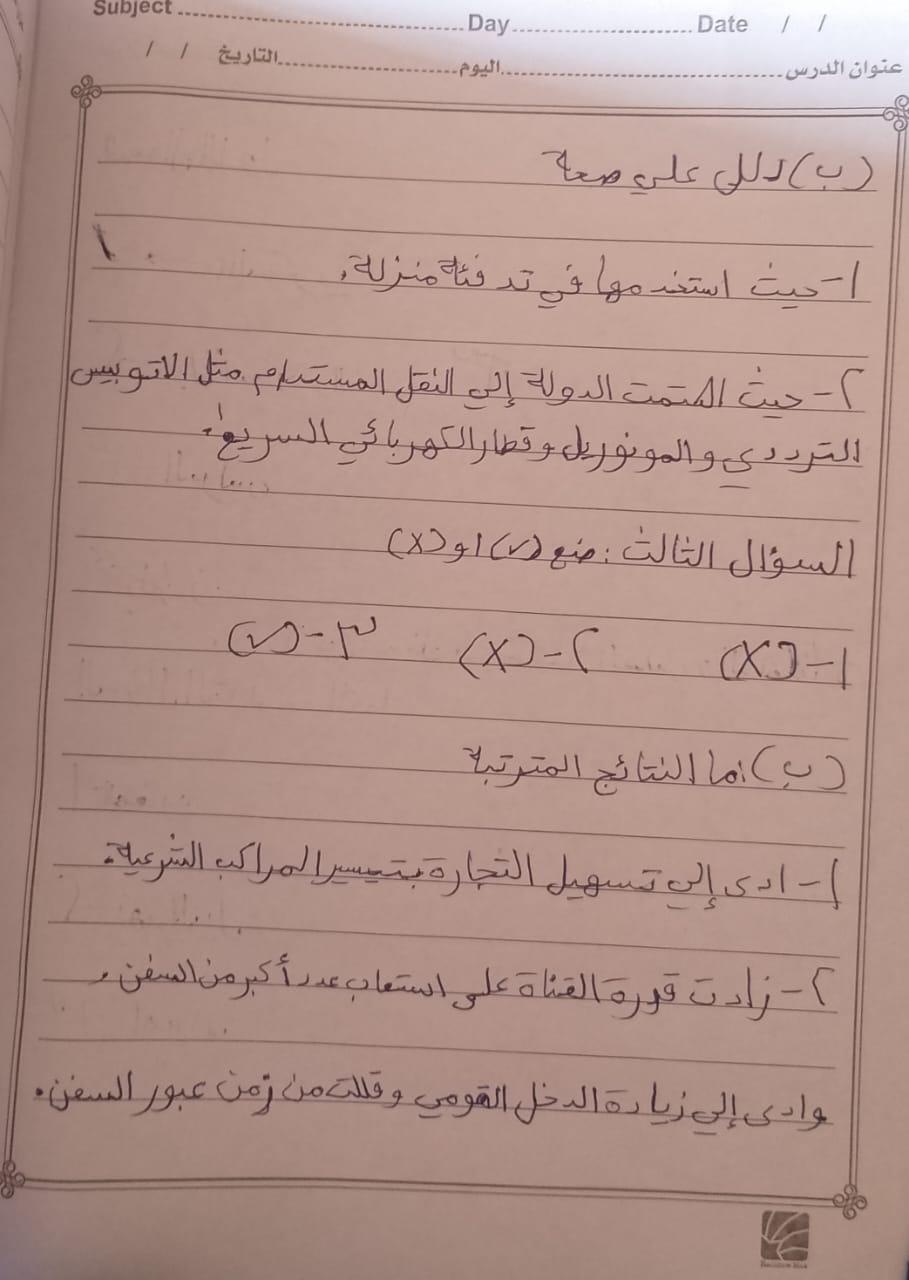 Subject ........ Day ........ Date / /
عنوان الدرس ........ اليوم ........ التاريخ / /
(ب) دللي علي صحة
1- حيث استخدمها في تدفئة منزلة.
٢- حيث اهتمت الدولة إلي النقل المستدام مثل الاتوبيس
الترددي والمونوريل وقطار الكهربائي السريع.
السؤال الثالث: ضع (✓) او (X)
1- (X) ٢- (X) ٣- (✓)
(ب) ما النتائج المترتبة
1- ادى إلي تسهيل التجارة بتيسير المراكب الشرعية.
٢- زادت قدرة القناة علي استعاب عدد أكبر من السفن.
وادى إلي زيادة الدخل القومي وقللت من زمن عبور السفن.